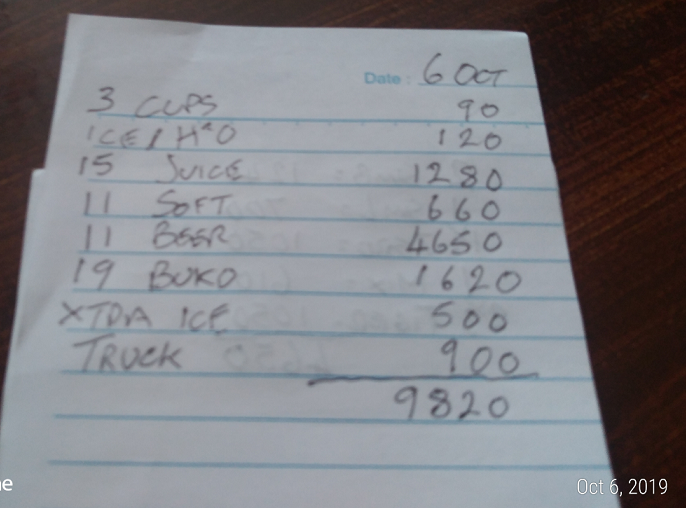 Date: 6 OCT
3 CUPS 90
ICE / H2O 120
15 JUICE 1280
11 SOFT 660
11 BEER 4650
19 BUKO 1620
XTRA ICE 500
TRUCK 900
9820
ne
Oct 6, 2019